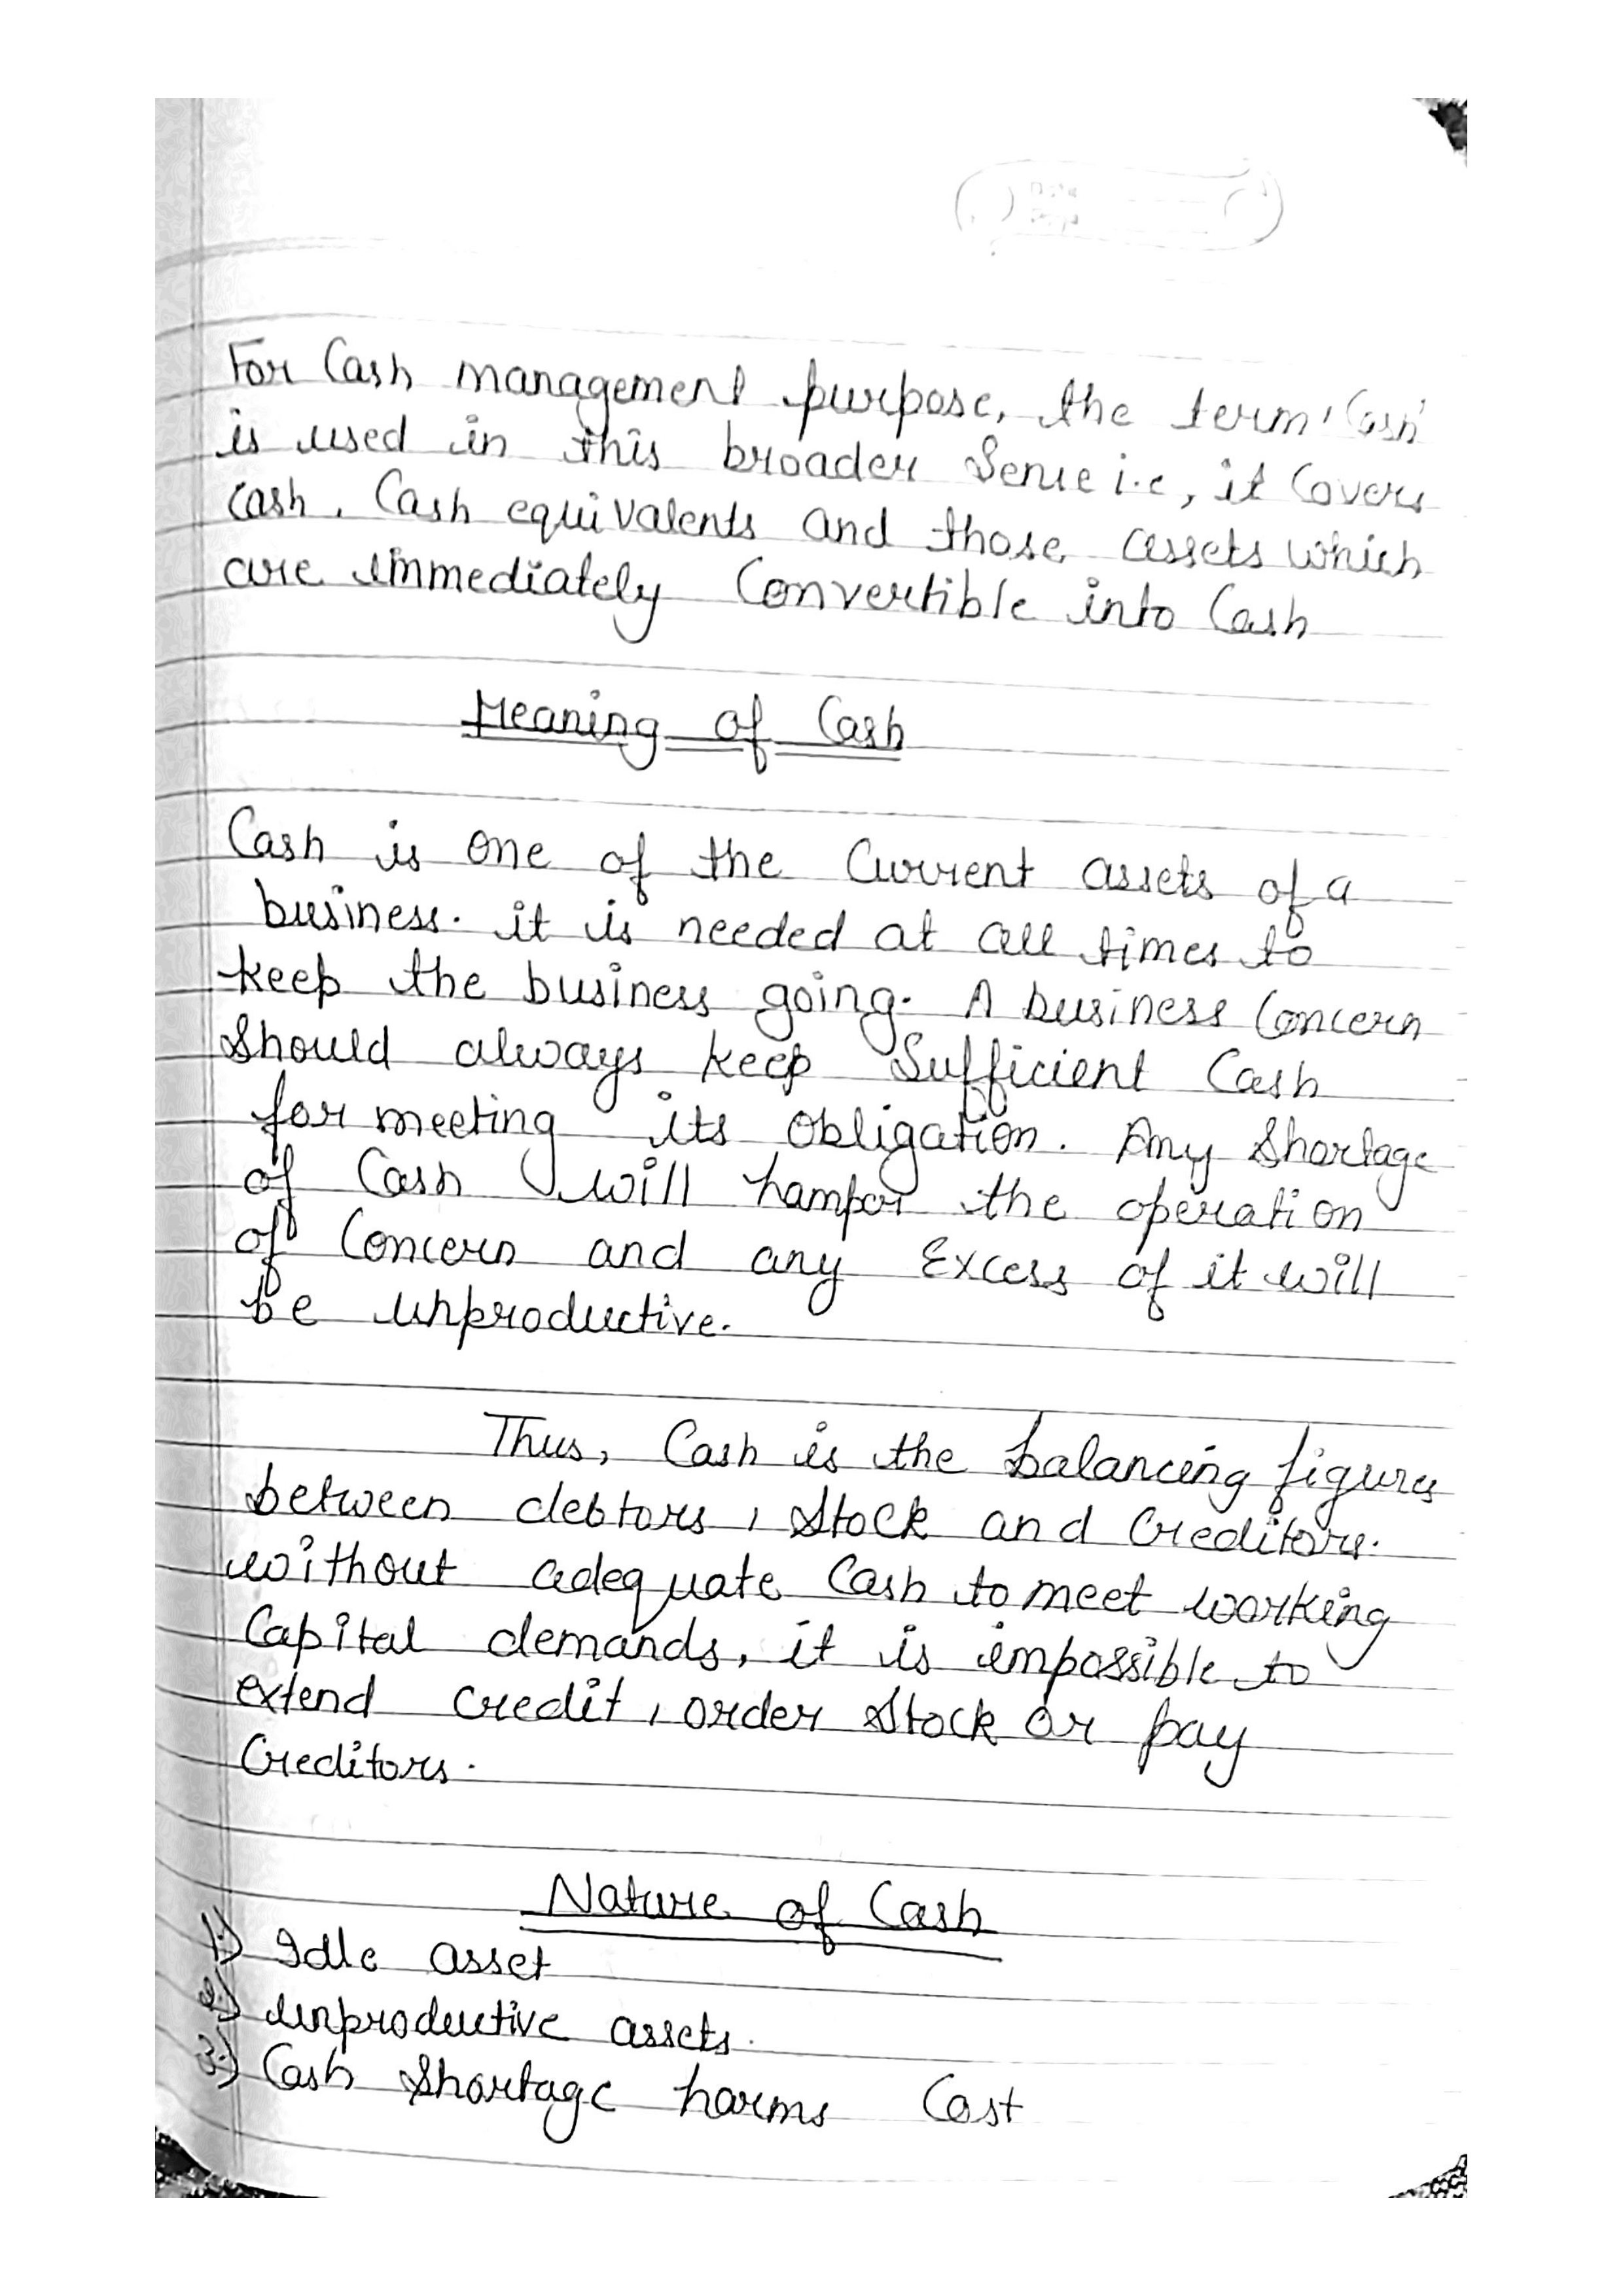 For Cash management purpose, the term 'Cash'
is used in this broader Sense i.e, it Covers
cash, Cash equivalents and those assets which
are immediately Convertible into Cash
Meaning of Cash
Cash is one of the Current assets of a
business. it is needed at all times to
keep the business going. A business Concern
Should always keep Sufficient Cash
for meeting its obligation. Any Shortage
of Cash will hamper the operation
of Concern and any Excess of it will
be unproductive.
Thus, Cash is the balancing figures
between debtors, Stock and Creditors.
without adequate Cash to meet working
Capital demands, it is impossible to
extend credit, order Stock or pay
Creditors.
Nature of Cash
1.) Idle asset
2.) Unproductive assets.
3.) Cash Shortage harms Cost